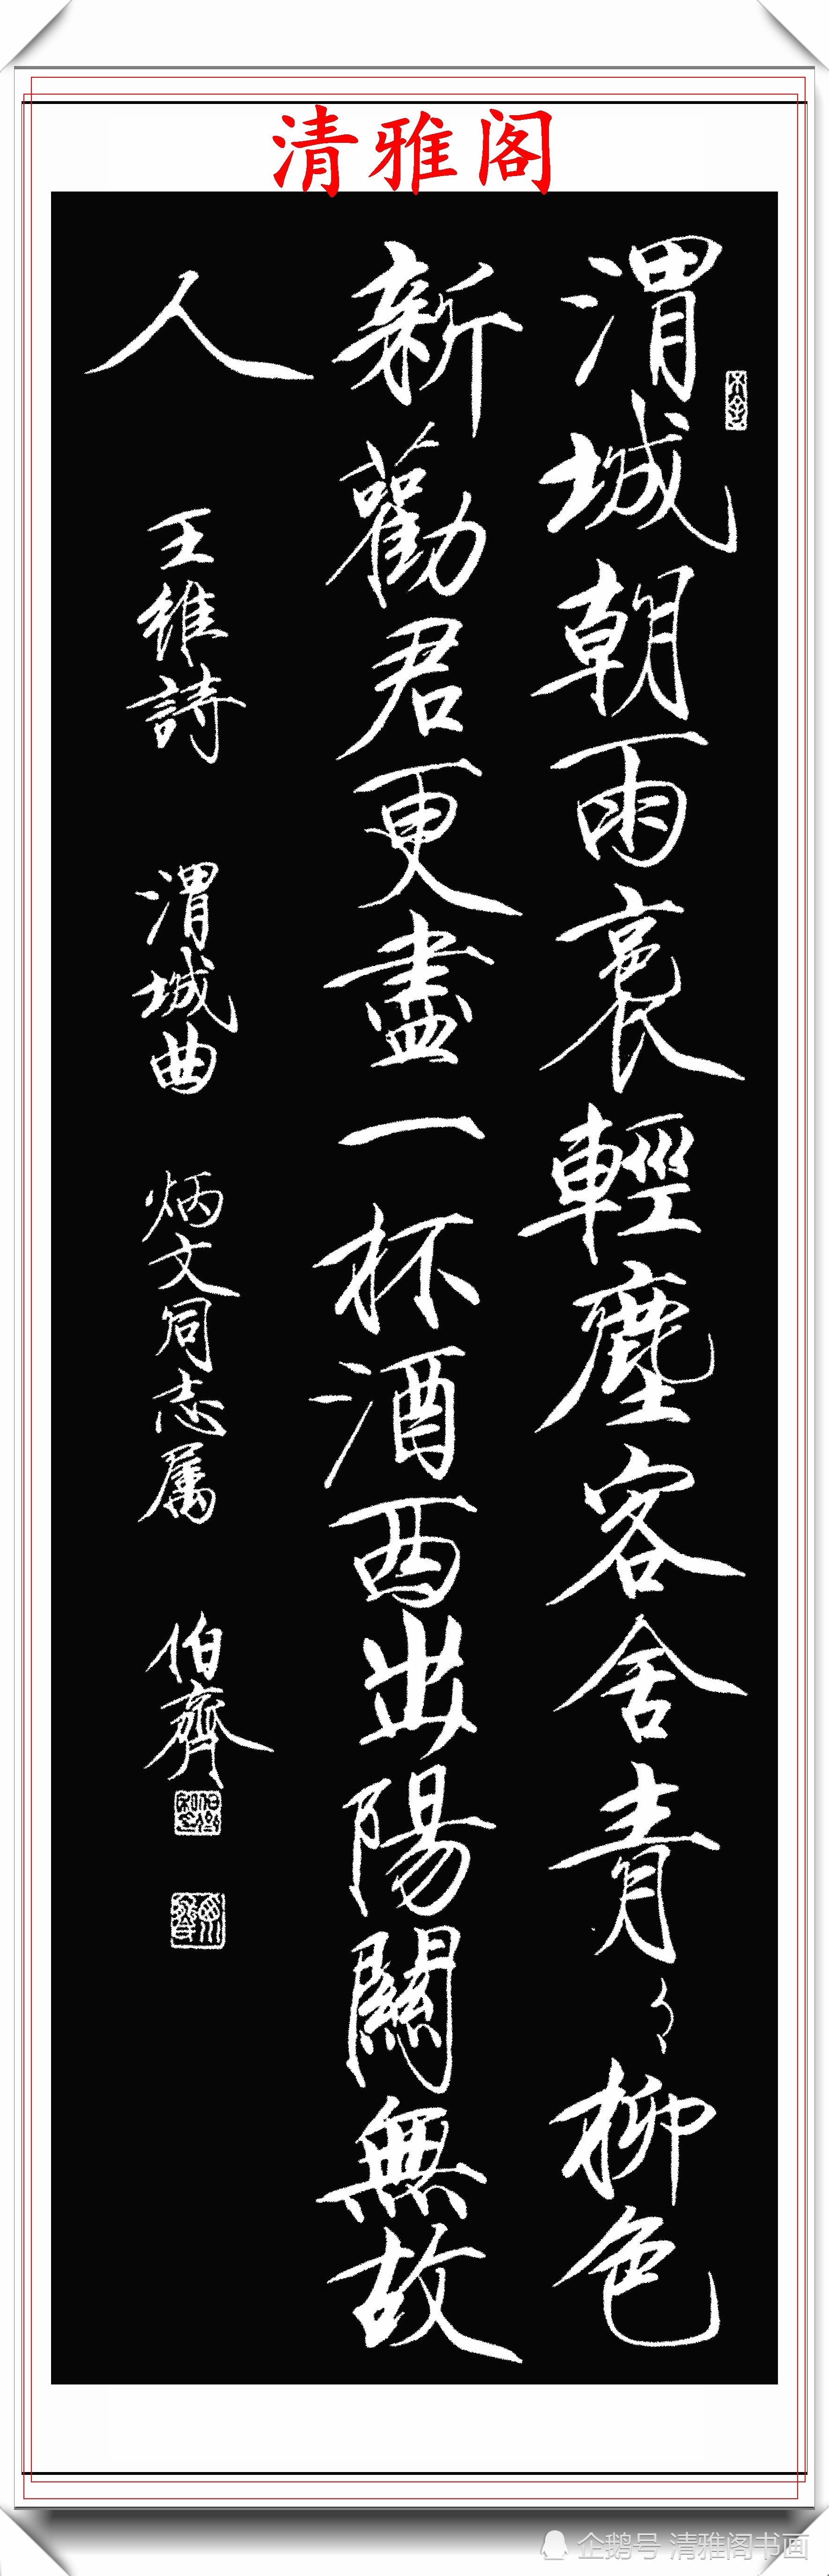 清雅阁
渭城朝雨裛輕塵客舍青々柳色
新勸君更盡一杯酒西出陽關無故
人 王維詩 渭城曲 炳文同志属 伯齊
企鹅号 清雅阁书画